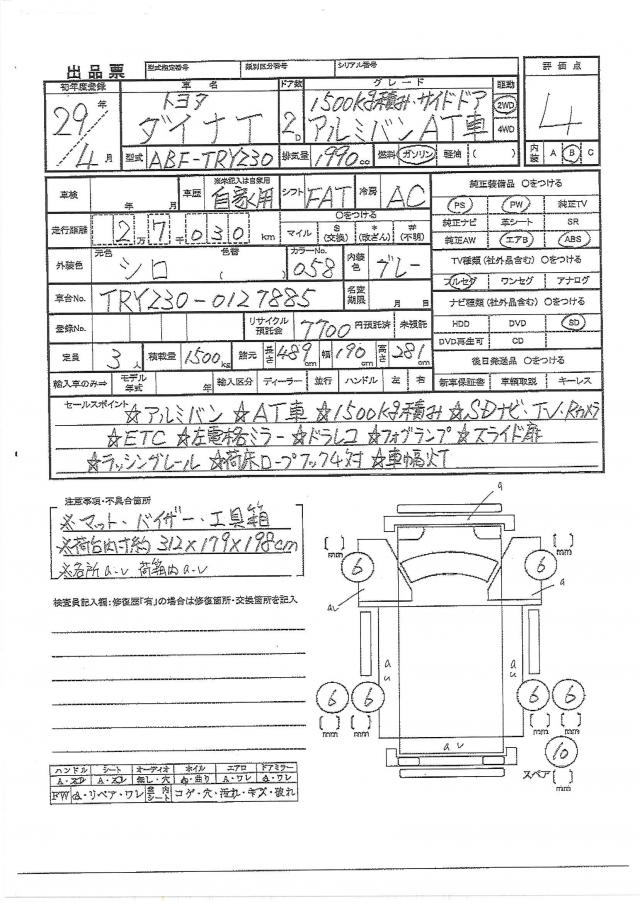 出品票 型式指定番号 類別区分番号 シリアル番号 評価点
初年度登録 車名 ドア数 グレード 駆動
29年 トヨタ 1500kg積み・サイドドア 2WD 4
ダイナT 2D アルミバンAT車 4WD
4月 型式 ABF-TRY230 排気量 1990cc 燃料 ガソリン・軽油( ) 内装 A B C
車検 年 月 車歴 ※未記入は自家用 自家用 シフト FAT 冷房 AC 純正装備品 〇をつける
PS PW 純正TV
走行距離 2万7千030km 〇をつける マイル $(交換) *(改ざん) #(不明) 純正ナビ 革シート SR
純正AW エアB ABS
外装色 元色 シロ 色替( ) カラーNo. 058 内装色 グレー TV種類(社外品含む)〇をつける
フルセグ ワンセグ アナログ
車台No. TRY230-0127885 名変期限 月 日 ナビ種類(社外品含む)〇をつける
登録No. リサイクル預託金 7700円預託済 未預託 HDD DVD SD
DVD再生可 CD
定員 3人 積載量 1500kg 諸元 長さ489cm 幅190cm 高さ281cm 後日発送品 〇をつける
輸入車のみ⇒ モデル年式 年 輸入区分 ディーラー 並行 ハンドル 左 右 新車保証書 車輌取説 キーレス
セールスポイント
☆アルミバン ☆AT車 ☆1500kg積み ☆SDナビ・TV・Rカメラ
☆ETC ☆左電格ミラー ☆ドラレコ ☆フォグランプ ☆スライド扉
☆ラッシングレール ☆荷床ロープフック4対 ☆車幅灯
注意事項・不具合箇所
※マット・バイザー・工具箱
※荷台内寸約 312×179×198cm
※各所a.u 荷箱内a.u
検査員記入欄:修復歴「有」の場合は修復箇所・交換箇所を記入
a
[ ]mm 6 6 [ ]mm
au a
au au
6 6 6 6
[ ]mm [ ]mm [ ]mm [ ]mm
au
10
スペア[ ]mm
ハンドル シート オーディオ ホイル エアロ ドアミラー
A・スレ A・スレ 無し・穴 曲り A・ワレ ワレ
FW A・リペア・ワレ 室内シート コゲ・穴・汚れ・キズ・破れ